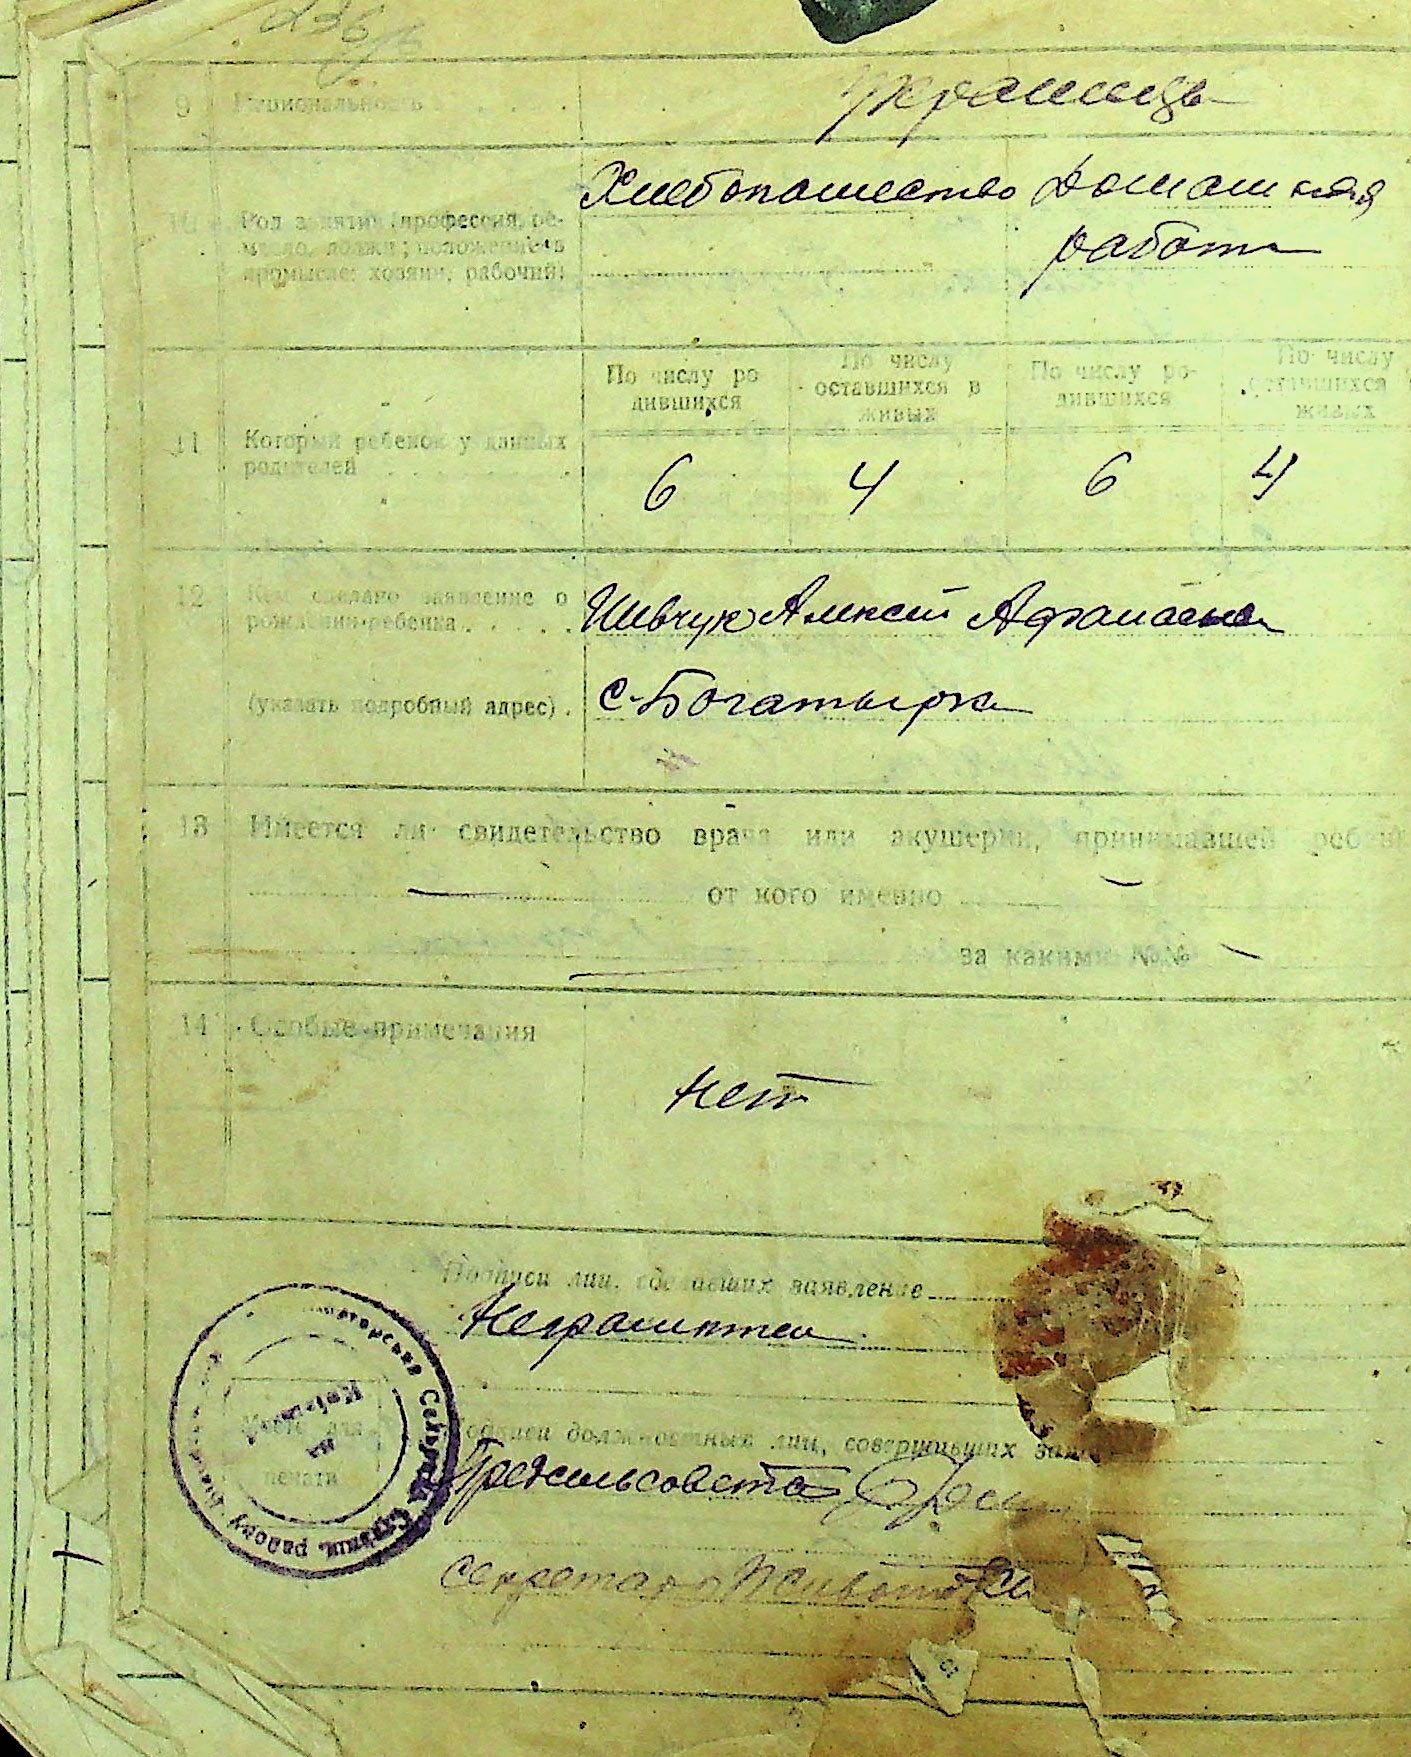 236
9 Национальность
Украинцы
10 Род занятий (профессия, ре-
месло, должн; положение в
промысле: хозяин, рабочий)
Хлебопашество Домашняя
работа
11 Который ребенок у данных
родителей
По числу ро
дившихся
По числу
оставшихся в
живых
По числу ро-
дившихся
По числу
оставшихся
живых
6 4 6 4
12 Кем сделано заявление о
рождении ребенка
Шевчук Алексей
(указать подробный адрес).
с. Богатырка
13 Имеется ли свидетельство врача или акушерки, принимавшей
от кого именно
за какими №№
14 Особые примечания
нет
Подписи лиц, сделавших заявление
Неграмотен
Место для
печати
Подписи должностных лиц, совершивших
Предсельсовета
секретарь